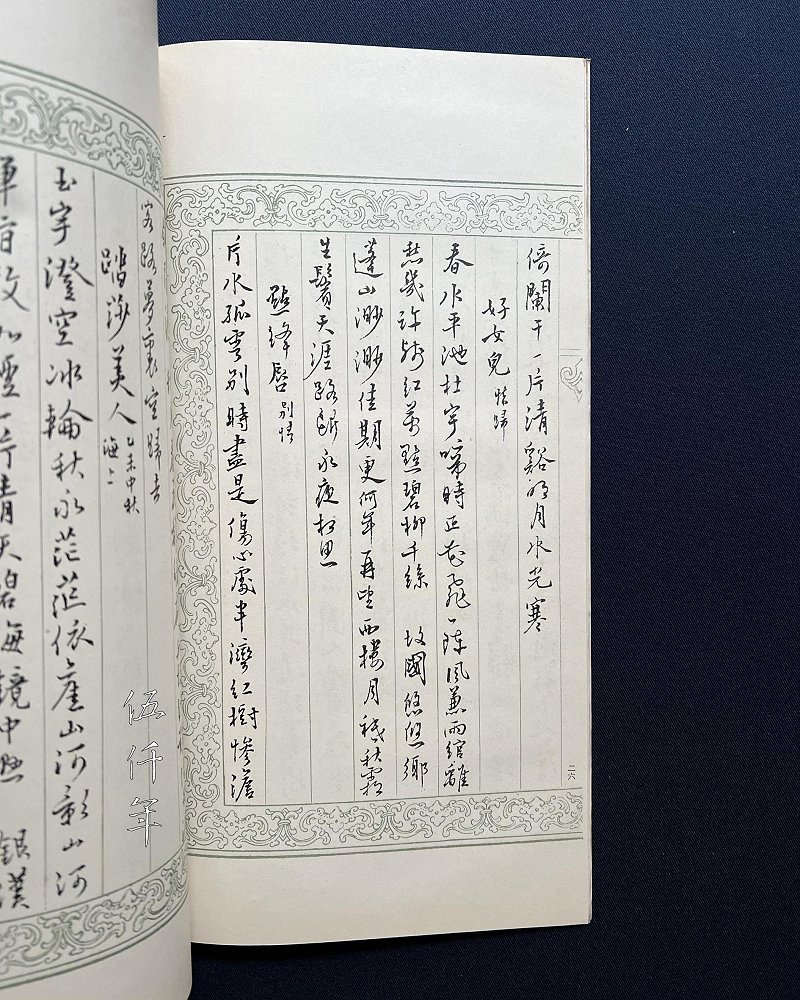 倚闌干一片清谿明月水光寒
好女兒 憶歸
春水平池杜宇啼時正花飛一陣風兼雨綰離
愁幾許殘紅萬點碧柳千絲 故國悠悠鄉
蓬山渺渺佳期更何年再望西樓月祗秋霜
生鬢天涯路斷永夜相思
點絳唇 別情
片水孤雲別時盡是傷心處半灣紅樹慘澹
二六
客路夢裏空歸去
踏莎美人 乙未中秋
海上
玉宇澄空冰輪秋永茫茫依舊山河影山河
一片青天碧海鏡中 銀漢
伍仟年